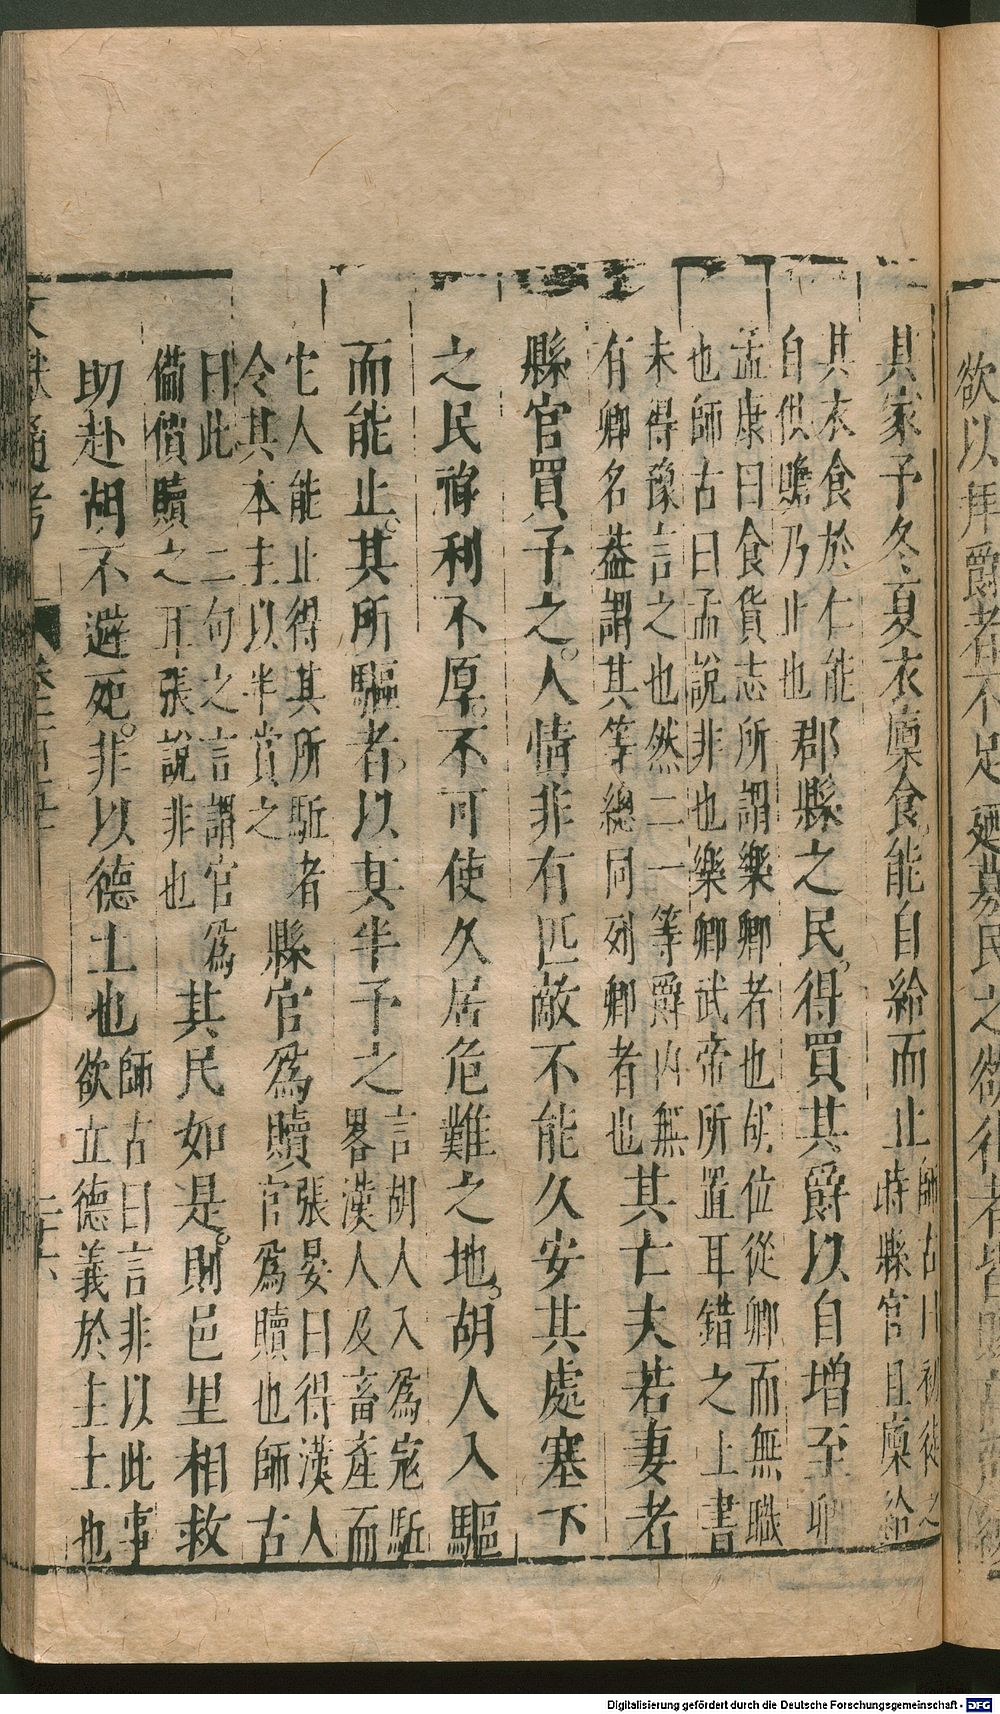 欲以拜爵者不足廼募民之欲往者皆賜
其家予冬夏衣廩食能自給而止
師古曰初徙之
時縣官且廩給
其衣食於仁能
自供贍乃止也
郡縣之民得買其爵以自增至卿
孟康曰食貨志所謂樂卿者也朝位從卿而無職
也師古曰孟說非也樂卿武帝所置耳錯之上書
未得豫言之也然二一等爵內無
有卿名益謂其等總同列卿者也
其亡夫若妻者
縣官買予之。人情非有匹敵不能久安其處塞下
之民祿利不厚。不可使久居危難之地。胡人入驅
而能止。其所驅者。以其半予之
言胡人入爲寇駈
畧漢人及畜產而
它人能止得其所駈者
令其本主以半賞之
縣官爲贖
張晏曰得漢人
官爲贖也師古
曰此二句之言謂官爲
備償贖之耳張說非也
其民如是。則邑里相救
助赴胡不避死。非以德上也
師古曰言非以此事
欲立德義於主上也
文獻通考
Digitalisierung gefördert durch die Deutsche Forschungsgemeinschaft - DFG